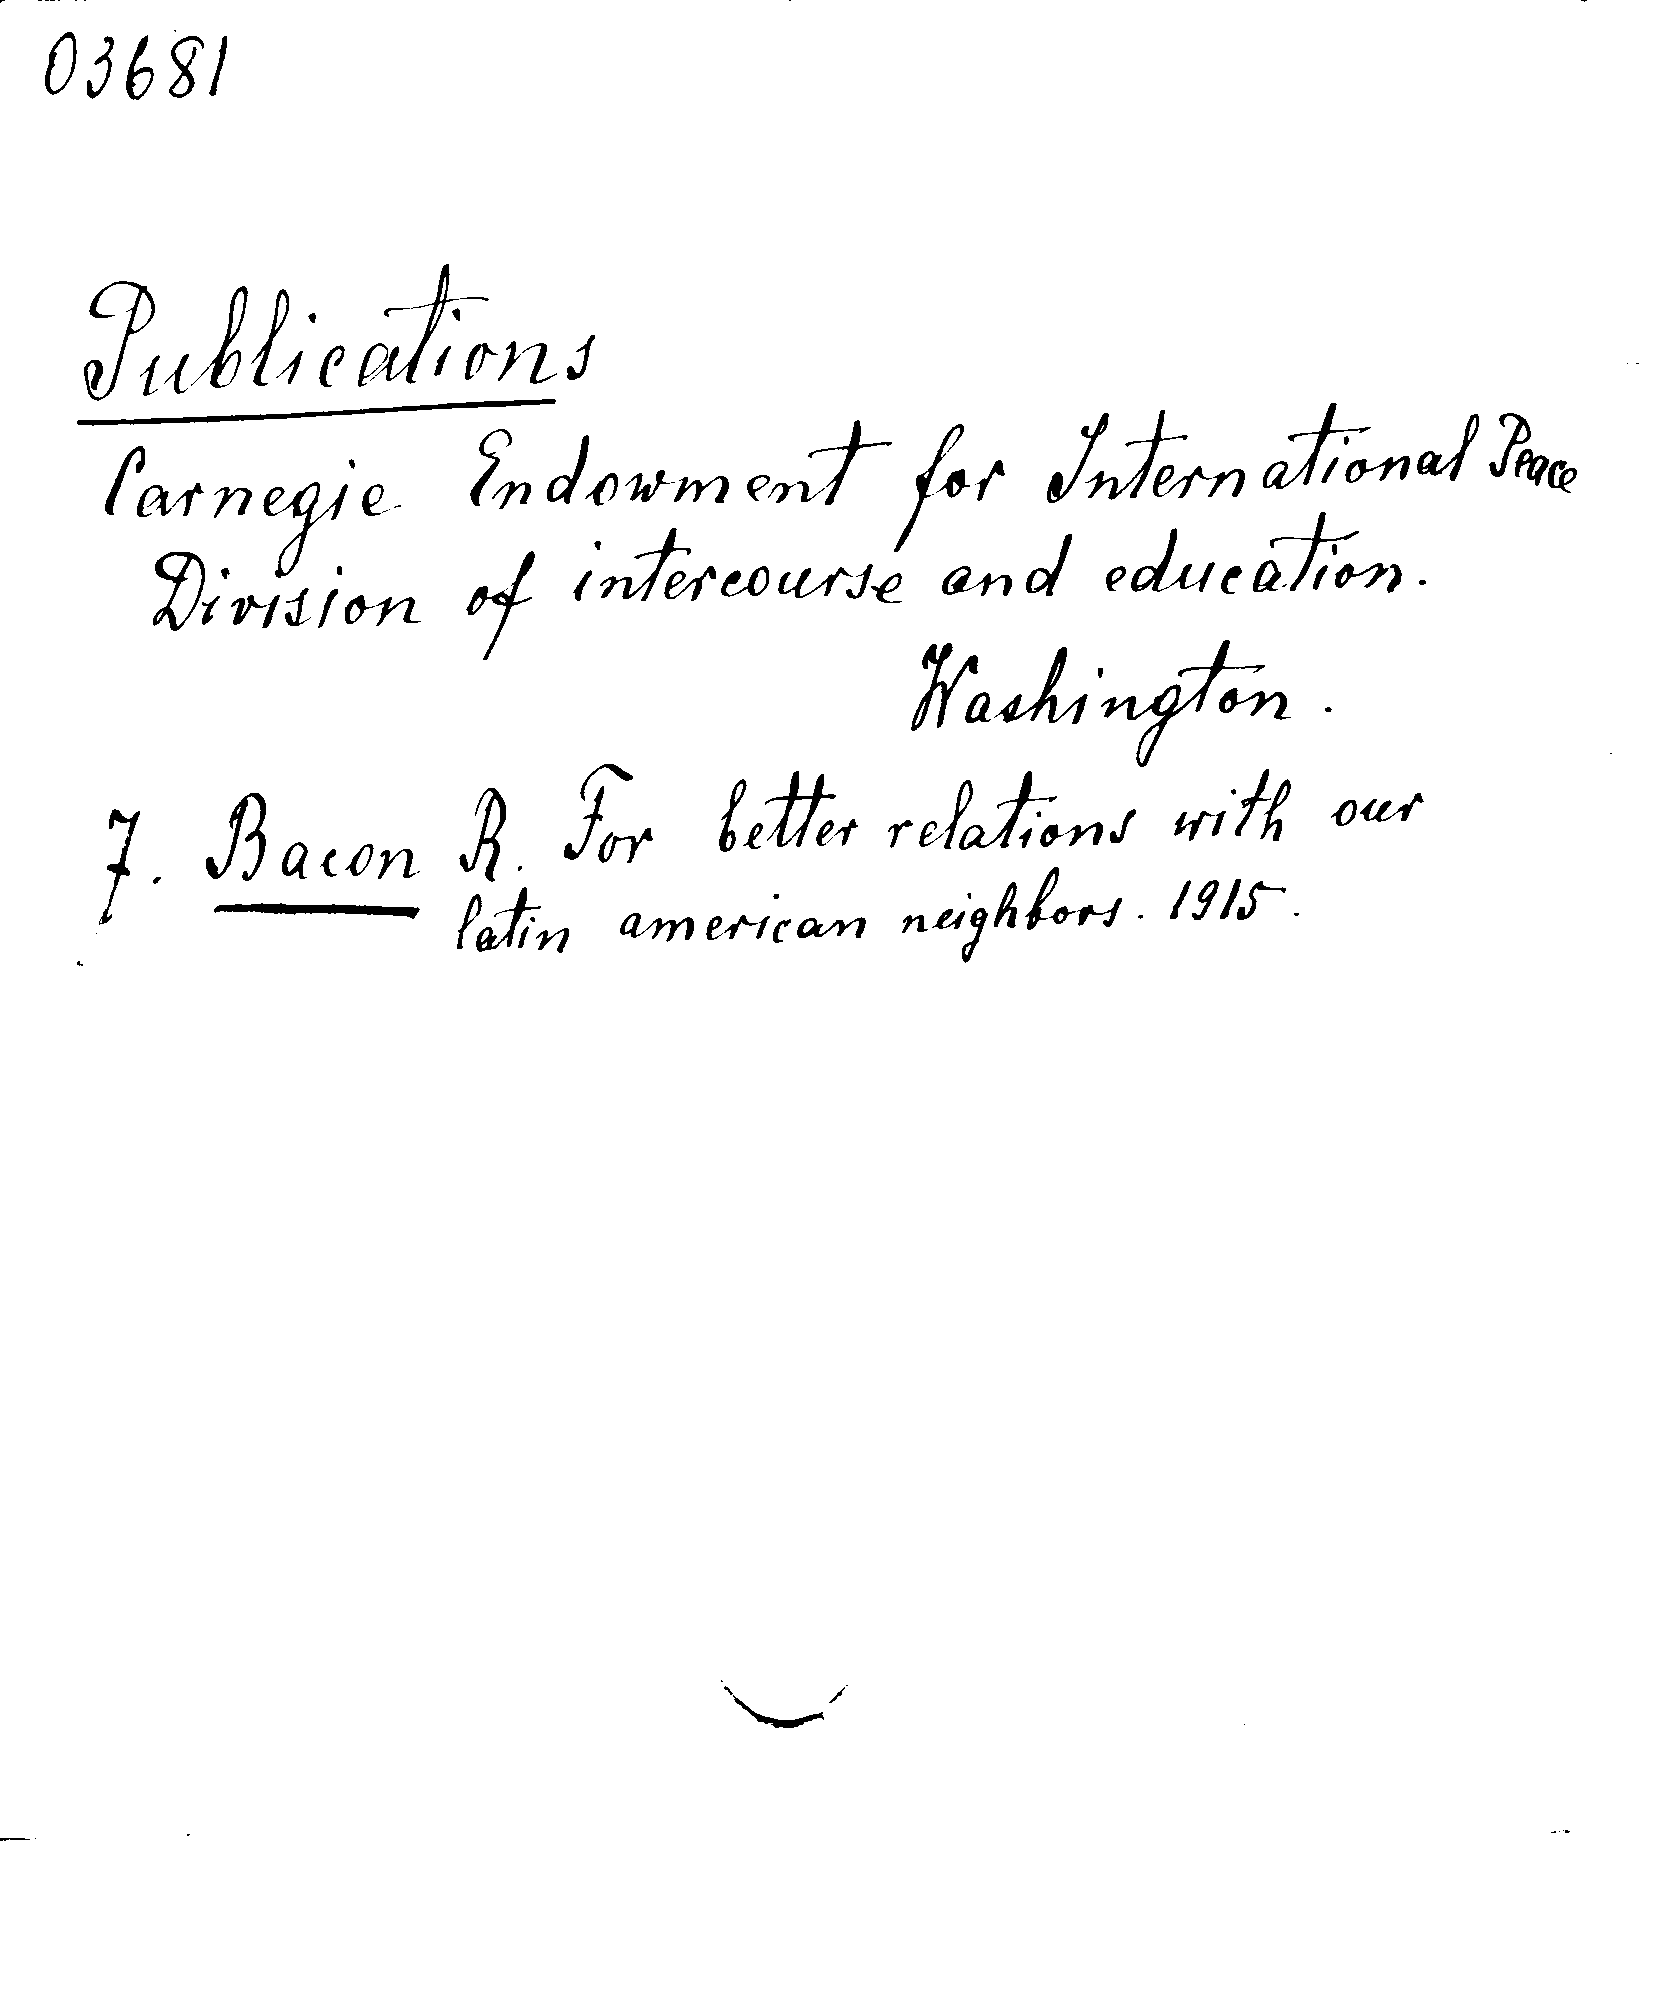 03681
Publications
Carnegie Endowment for International Peace
Division of intercourse and education.
Washington.
7. Bacon R. For better relations with our
latin american neighbors. 1915.